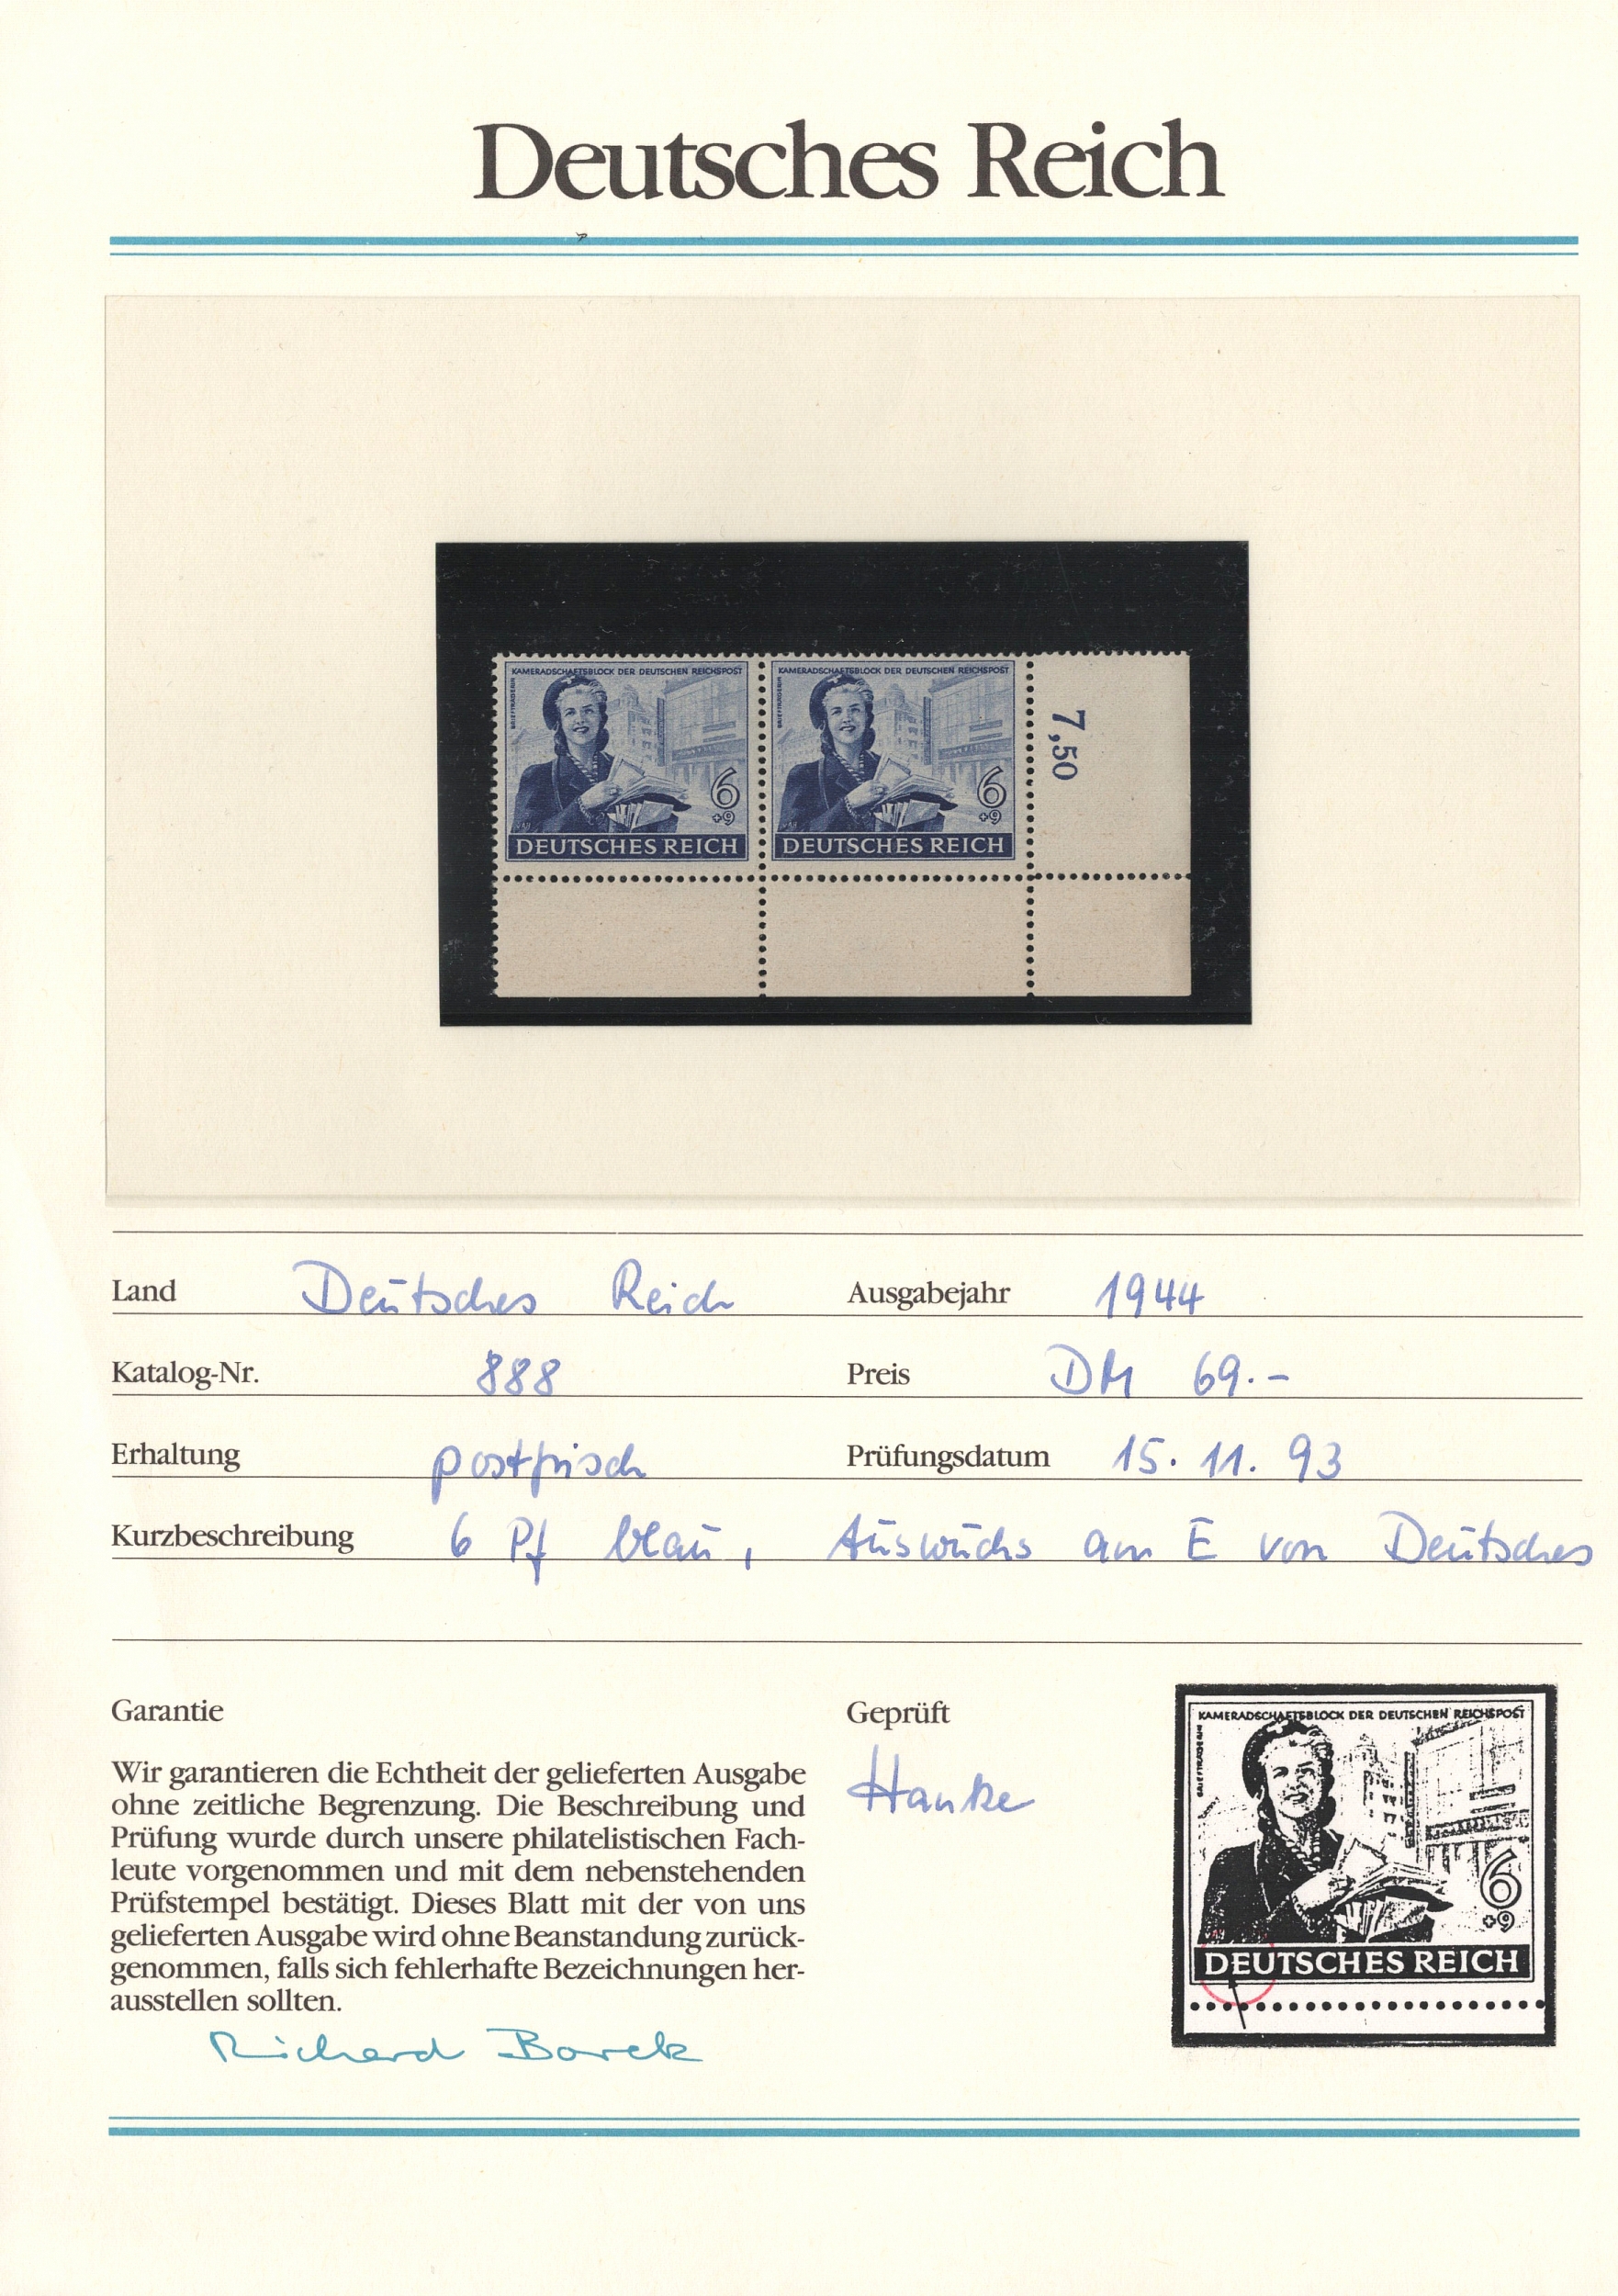 Deutsches Reich
KAMERADSCHAFTSBLOCK DER DEUTSCHEN REICHSPOST
BRIEFTRÄGERIN
6
+9
DEUTSCHES REICH
KAMERADSCHAFTSBLOCK DER DEUTSCHEN REICHSPOST
BRIEFTRÄGERIN
6
+9
DEUTSCHES REICH
7,50
Land Deutsches Reich Ausgabejahr 1944
Katalog-Nr. 888 Preis DM 69.-
Erhaltung postfrisch Prüfungsdatum 15. 11. 93
Kurzbeschreibung 6 Pf blau, Auswuchs am E von Deutsches
Garantie
Wir garantieren die Echtheit der gelieferten Ausgabe
ohne zeitliche Begrenzung. Die Beschreibung und
Prüfung wurde durch unsere philatelistischen Fach-
leute vorgenommen und mit dem nebenstehenden
Prüfstempel bestätigt. Dieses Blatt mit der von uns
gelieferten Ausgabe wird ohne Beanstandung zurück-
genommen, falls sich fehlerhafte Bezeichnungen her-
ausstellen sollten.
Richard Borek
Geprüft
Hanke
KAMERADSCHAFTSBLOCK DER DEUTSCHEN REICHSPOST
BRIEFTRÄGERIN
6
+9
DEUTSCHES REICH